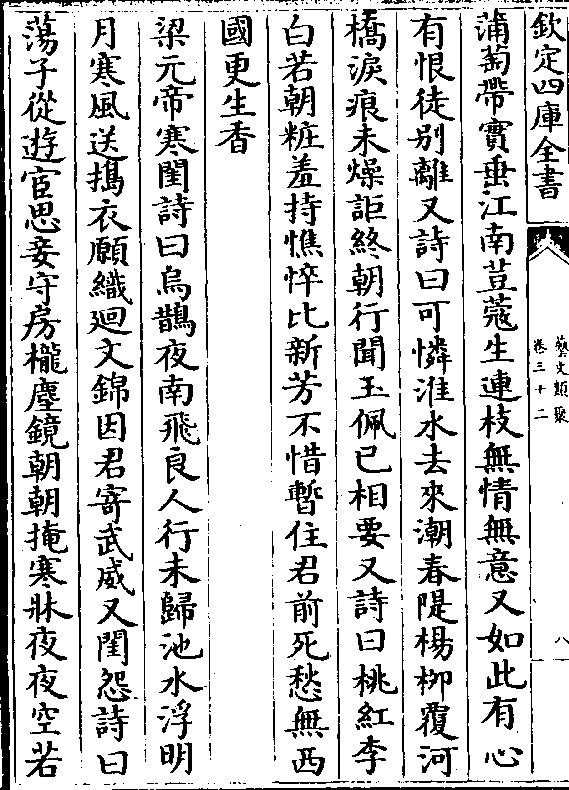 欽定四庫全書
藝文類聚
卷三十二
八
蒲萄帶實垂江南荳蔻生連枝無情無意又如此有心
有恨徒别離又詩曰可憐淮水去來潮春隄楊栁覆河
橋淚痕未燥詎終朝行聞玉佩已相要又詩曰桃紅李
白若朝粧羞持憔悴比新芳不惜暫住君前死愁無西
國更生香
梁元帝寒閨詩曰烏鵲夜南飛良人行未歸池水浮明
月寒風送擣衣願織廻文錦因君寄武威又閨怨詩曰
蕩子從遊宦思妾守房櫳塵鏡朝朝掩寒牀夜夜空若